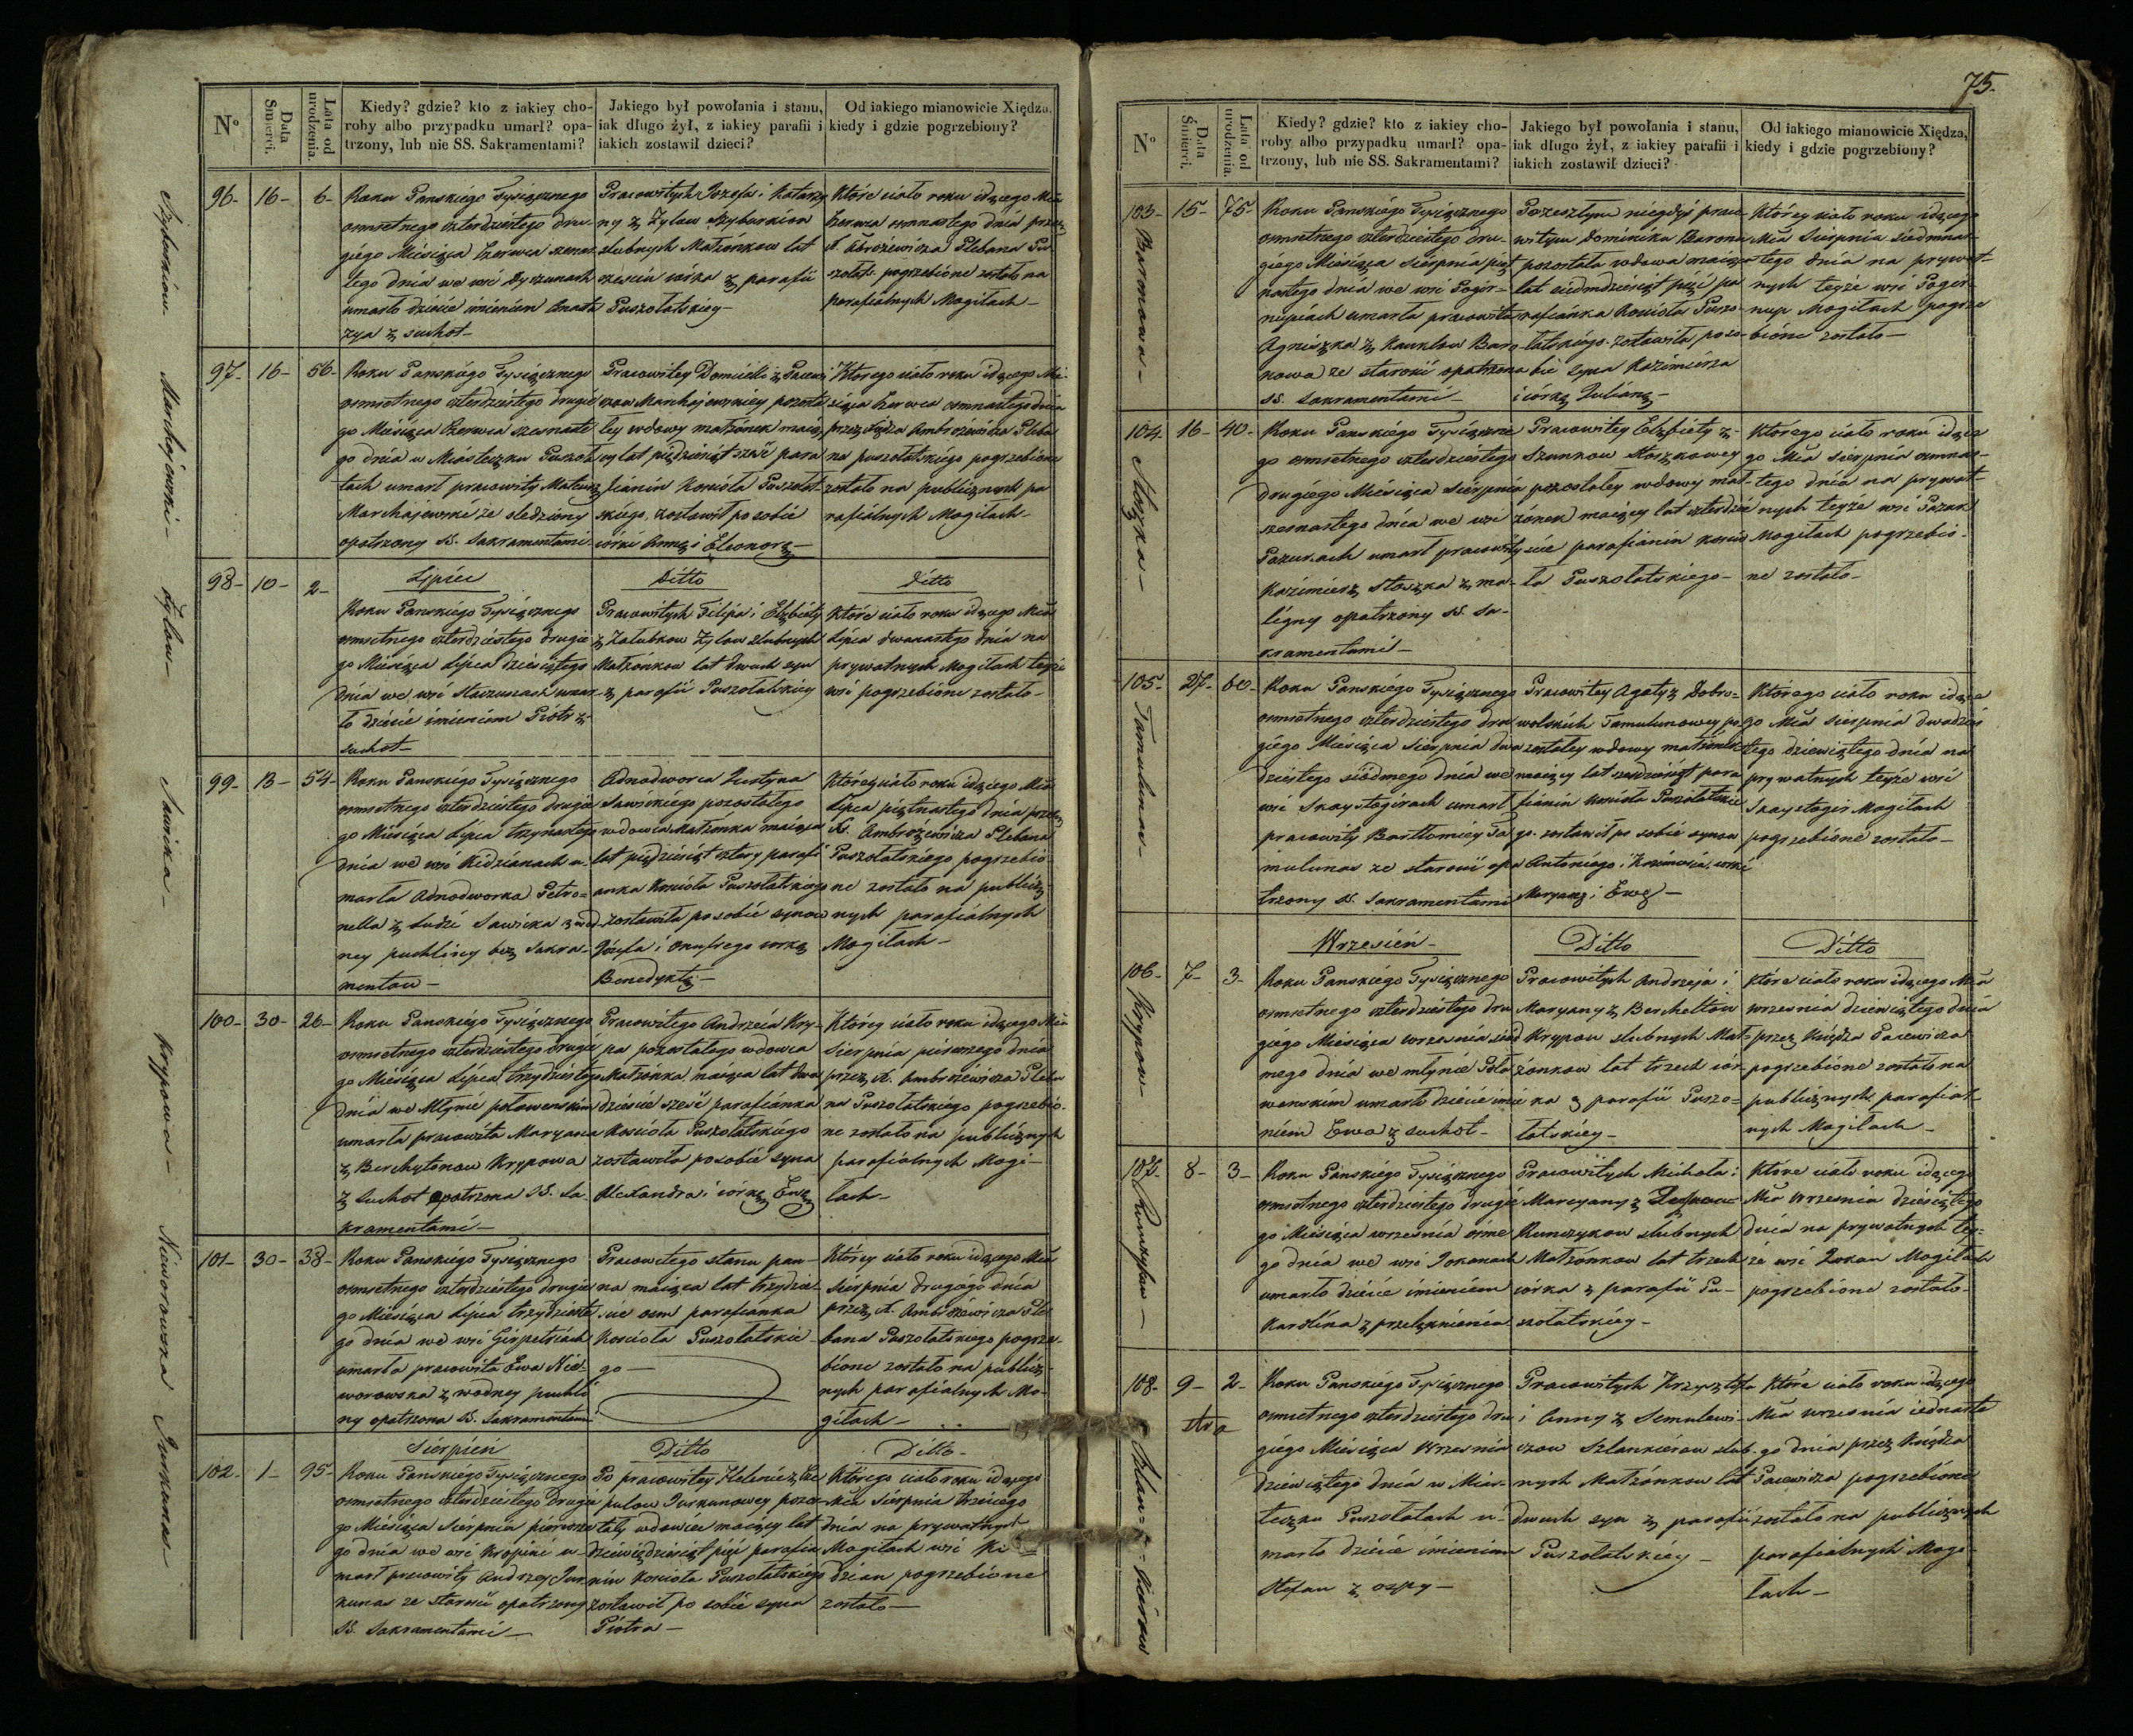 Nº
Data Śmierci.
Lata od urodzenia.
Kiedy? gdzie? kto z iakiey cho-
roby albo przypadku umarł? opa-
trzony, lub nie SS. Sakramentami?
Jakiego był powołania i stanu,
iak długo żył, z iakiey parafii i
iakich zostawił dzieci?
Od iakiego mianowicie Xiędza,
kiedy i gdzie pogrzebiony?
96- 16- 6-
Roku Panskiégo Tysiącznego
osmsetnego czterdziestego dru-
giégo Miésiąca Czerwca szesnas
tego dnia we wsi
umarło dziécie imieniem Anasta
zya z suchot-
Pracowitych Jozefa i Katarzy
ny z Zylow Szyburkiow
slubnych Małżonkow lat
szesciu córka z parafii
Puszołatskiey-
Które ciało roku idącego Mca
Czerwca osmnastego dnia przez
X. Abrozewicza Plebana Pu
szołats. pogrzebione zostało na
parafialnych Mogiłach-
97- 16- 56-
Roku Panskiégo Tysiącznego
osmsetnego czterdziestego drugié
go Miésiąca Czerwca szesnaste
go dnia w Miasteczku Puszoł
tach umarł pracowity Mateusz
Marchajewski ze sledziony
opatrzony SS. Sakramentami-
Pracowitey Domicelli z
Marchajewskiey pozosta
łey wdowy małżonek maią
cy lat piędziesiąt szesć para
fianin Kosciola Puszołat
skiego, zostawił po sobie
córki Annę i Eleonorę-
Ktorego ciało roku idącego Mie-
siąca Czerwca osmnastego dnia
przez Xiędza Ambrozewicza Pleba
na puszołatskiego pogrzebione
zostało na publicznych pa
rafialnych Mogiłach-
Lipiec
Ditto
Ditto
98- 10- 2-
Roku Panskiégo Tysiącznego
osmsetnego czterdziestego drugié
go Miésiąca Lipca dziesiątego
dnia we wsi Staczunach umar
ło dziécie imieniem Piotr z
suchot-
Pracowitych Filipa i Elżbiéty
z Załubkow Zylow slubnych
Małżonkow lat dwuch syn
z parafii Puszołatskiey
Które ciało roku idącego Mca
Lipca dwunastego dnia na
prywatnych Mogiłach teyże
wsi pogrzebione zostało-
99- 13- 54-
Roku Panskiégo Tysiącznego
osmsetnego czterdziestego drugié
go Miésiąca Lipca trzynastego
dnia we wsi Kidzianach u-
marła Adnodworka Petro=
nella z Ludzi Sawicka z wod-
ney puchliny bez Sakra-
mentow-
Adnodworca Justyna
Sawickiégo pozostałego
wdowca Małżonka maiąca
lat pięдziesiąt cztery parafi
anka Kosciola Puszołatskiego
zostawiła po sobie synow
Józefa i Onufrego córkę
Benedyktę-
Którey ciało roku idącego Mca
Lipca piętnastego dnia przez
X. Ambrożewicza Plebana
Puszołatskiego pogrzebio-
ne zostało na publicz-
nych parafialnych
Mogiłach-
100- 30- 26-
Roku Panskiégo Tysiącznego
osmsetnego czterdziestego drugié
go Miésiąca Lipca trzydziestego
dnia we Młynie połowenskim
umarła pracowita Maryana
z Berchytonow Krypowa
z suchot opatrzona SS. Sa-
kramentami-
Pracowitego Andrzeia Kry-
pa pozostałego wdowca
Małżonka maiąca lat dwa
dziescie szesć parafianka
Kosciola Puszołatskiégo
zostawiła po sobie syna
Alexandra i córkę Ewę
Którey ciało roku idącego Mca
Sierpnia pierwszego dnia
przez X. Ambrożewicza Pleba
na Puszołatskiego pogrzebio-
ne zostało na publicznych
parafialnych Mogi-
łach-
101- 30- 38-
Roku Panskiégo Tysiącznego
osmsetnego czterdziestego drugié
go Miésiąca Lipca trzydzieste
go dnia we wsi Girpetsiach
umarła pracowita Ewa Nie-
worowska z wodney puchli
ny opatrzona SS. Sakramentami
Pracowitego stanu pan-
na maiąca lat trzydzie-
sci osm parafianka
Kosciola Puszołatskie
go-
Którey ciało roku idącego Mca
sierpnia drugiego dnia
przez X. Ambrożewicza Ple
bana Puszołatskiego pogrze-
bione zostało na publicz-
nych parafialnych Mo-
giłach-
Sierpień
Ditto
Ditto-
102- 1- 95-
Roku Panskiégo Tysiącznego
osmsetnego czterdziestego drugié
go Miésiąca Sierpnia pierwsze
go dnia we wsi Kropini u-
marł pracowity Andrzey Jur
kunas ze starosci opatrzony
SS. Sakramentami-
Po pracowitey Helenie z
pulow Jurkunowey pozos-
tały wdowiec maiący lat
dziewiędziesiąt pięć parafia
nin Kosciola Puszołatskiégo
zostawił po sobie syna
Piotra-
Którego ciało roku idącego
Mca Sierpnia trzeciego
dnia na prywatnych
Mogiłach wsi Ki
dzian pogrzebione
zostało-
Szyburkiow-
Marchajewski-
Zylow-
Sawicka-
Krypowa-
Nieworowska
Jurkunas-
75.
Nº
Data Śmierci.
Lata od urodzenia.
Kiedy? gdzie? kto z iakiey cho-
roby albo przypadku umarł? opa-
trzony, lub nie SS. Sakramentami?
Jakiego był powołania i stanu,
iak długo żył, z iakiey parafii i
iakich zostawił dzieci?
Od iakiego mianowicie Xiędza,
kiedy i gdzie pogrzebiony?
103- 15- 75-
Baronowa-
Roku Panskiégo Tysiącznego
osmsetnego czterdziestego dru-
giégo Miésiąca sierpnia pięt
nastego dnia we wsi Pogir-
nupiach umarła pracowita
Agnieszka z Kauklow Baro
nowa ze starosci opatrzona
SS. Sakramentami-
Pozeszłym niegdyś praco-
witym Dominiku Baronu
pozostała wdowa maiąca
lat siedmdziesiąt pięć pa
rafianka Kosciola Puszo-
łatskiégo. zostawiła po so-
bie syna Kazimierza
i córkę Julianę-
Którey ciało roku idącego
Mca Sierpnia siedmnas-
tego dnia na prywat-
nych teyże wsi Pogir-
nup Mogiłach pogrze
bione zostało-
104- 16- 40-
Stoszka-
Roku Panskiégo Tysiączne
go osmsetnego czterdziestego
drugiégo Miésiąca Sierpnia
szesnastego dnia we wsi
Pazurach umarł pracowity
Kazimierz Stoszka z ma-
ligny opatrzony SS. Sa-
kramentami-
Pracowitey Elżbiety z-
Szunkow Stoszkowey
pozostałey wdowy mał-
żonek maiący lat czterdzie
scie parafianin koscio
ła Puszołatskiego-
Którego ciało roku idące
go Mca Sierpnia osmnas-
tego dnia na prywat-
nych teyże wsi Pazur
Mogiłach pogrzebio-
ne zostało-
105- 27- 60-
Tamulunas-
Roku Panskiégo Tysiącznego
osmsetnego czterdziestego dru
giégo Miésiąca Sierpnia dwa
dziestego siódmego dnia we
wsi Skaystogirach umarł
pracowity Bartłomiéy Ta
mulunas ze starosci opa
trzony SS. Sakramentami
Pracowitey Agaty z Dobro-
wolskich Tamulunowey po-
zostałey wdowy małżonek
maiący lat szesdziesiąt para
fianin Kosciola Puszołatskie
go. zostawił po sobie synow
Antoniego i Kazimierza, córki
Maryanę i Ewę-
Którego ciało roku idące
go Mca Sierpnia dwadzies
tego dziewiątego dnia na
prywatnych teyże wsi
Skaystogir Mogiłach
pogrzebione zostało-
Wrzesień-
Ditto
Ditto
106- 7- 3-
Krypow-
Roku Panskiégo Tysiącznego
osmsetnego czterdziestego dru
giégo Miésiąca wrzesnia siód
mego dnia we młynie Poło
wenskim umarło dziécie imie
niem Ewa z suchot-
Pracowitych Andrzeja i
Maryany z Berchettow
Krypow slubnych Mał-
żonkow lat trzech cór
ka z parafii Puszo=
łatskiey-
Które ciało roku idącego Mca
wrzesnia dziewiątego dnia
przez Księdza Pacewicza
pogrzebione zostało na
publicznych parafial
nych Mogiłach-
107- 8- 3-
Roku Panskiégo Tysiącznego
osmsetnego czterdziestego drugié
go Miésiąca wrzesnia ósme
go dnia we wsi Jokanach
umarło dziécie imieniem
Karolina z przelęknienia
Pracowitych Michała i
Maryany z
slubnych
Małżonkow lat trzech
córka z parafii Pu-
szołatskiéy-
Które ciało roku idącego
Mca Wrzesnia dziesiątego
dnia na prywatnych tey-
że wsi Jokan Mogiłach
pogrzebione zostało-
108- 9- 2-
Roku Panskiégo Tysiącznego
osmsetnego czterdziestego dru
giégo Miésiąca Wrzesnia
dziewiątego dnia w Mias-
teczku Puszołatach u-
marło dziécie imieniem
Stefan z ospy-
Pracowitych Krzysztofa
i Anny z Semulewi-
czow Szlankierow slub-
nych Małżonkow lat
dwuch syn z parafii
Puszołatskiéy-
Które ciało roku idącego
Mca wrzesnia iednaste
go dnia przez Księdza
Pacewicza pogrzebione
zostało na publicznych
parafialnych Mogi
łach-